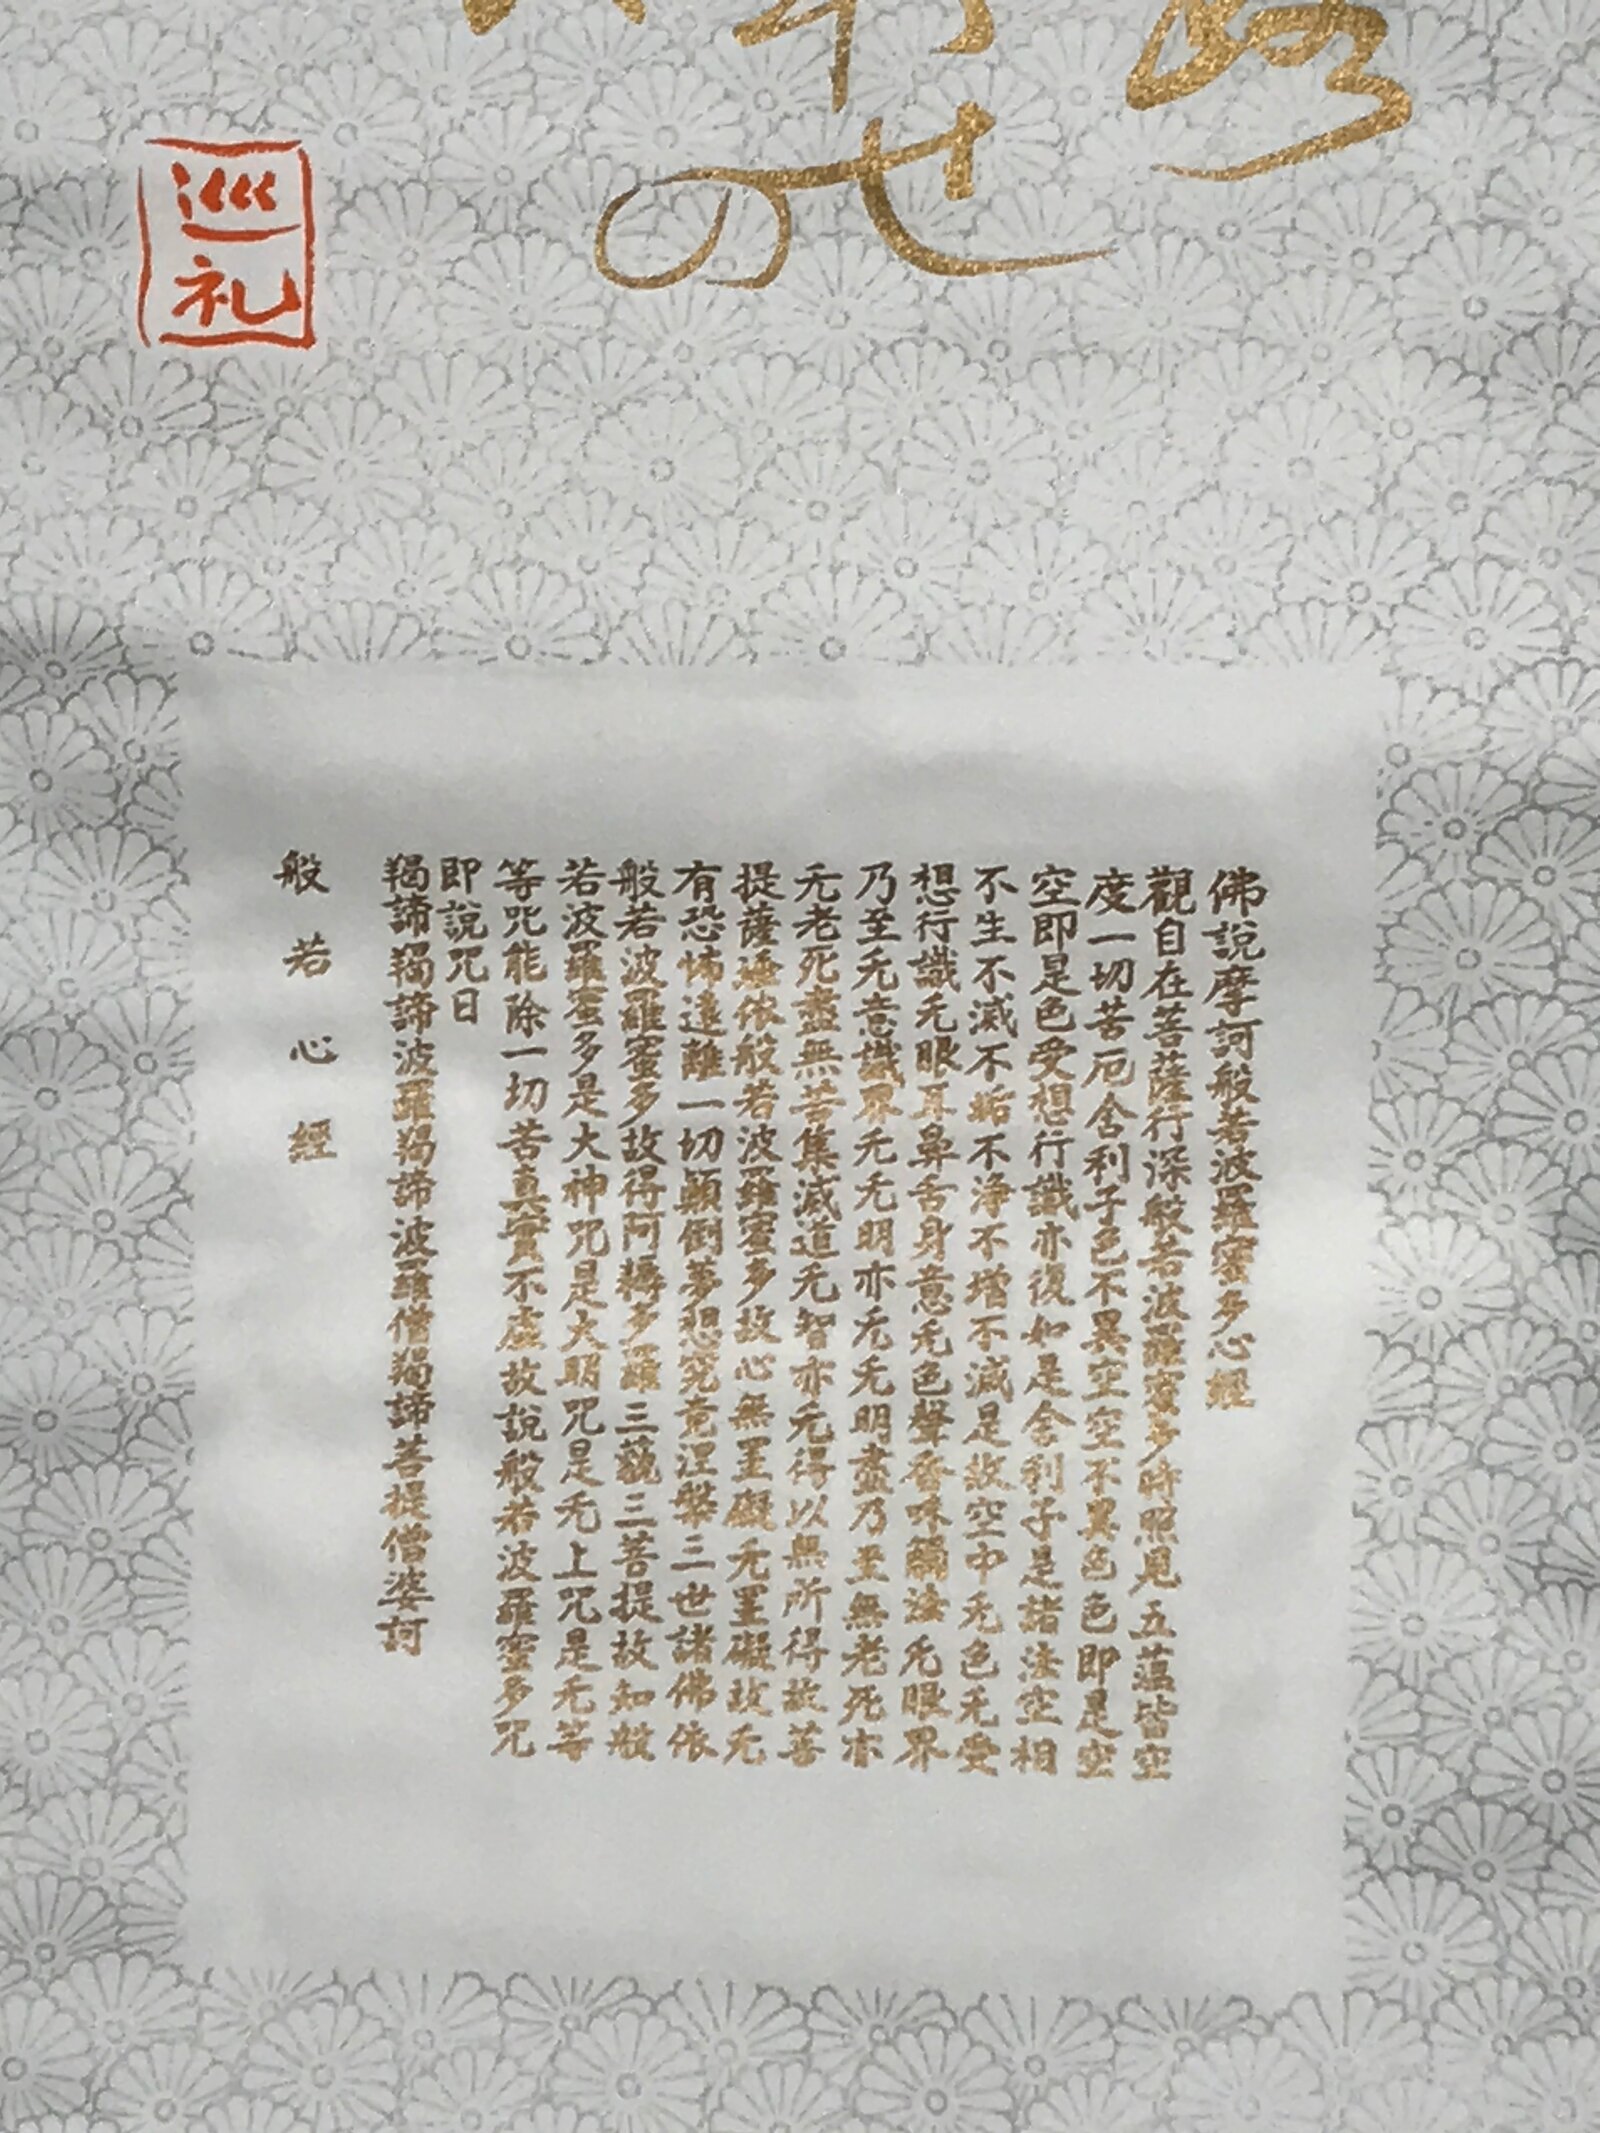 のせ
巡礼
佛說摩訶般若波羅蜜多心經
觀自在菩薩行深般若波羅蜜多時照見五蘊皆空
度一切苦厄舍利子色不異空空不異色色即是空
空即是色受想行識亦復如是舍利子是諸法空相
不生不滅不垢不浄不增不減是故空中无色无受
想行識无眼耳鼻舌身意无色聲香味觸法无眼界
乃至无意識界无无明亦无无明盡乃至無老死亦
无老死盡無苦集滅道无智亦无得以無所得故菩
提薩埵依般若波羅蜜多故心無罣礙无罣礙故无
有恐怖遠離一切顛倒夢想究竟涅槃三世諸佛依
般若波羅蜜多故得阿耨多羅三藐三菩提故知般
若波羅蜜多是大神咒是大明咒是无上咒是无等
等咒能除一切苦真實不虛故說般若波羅蜜多咒
即說咒曰
羯諦羯諦波羅羯諦波羅僧羯諦菩提僧婆訶
般若心經